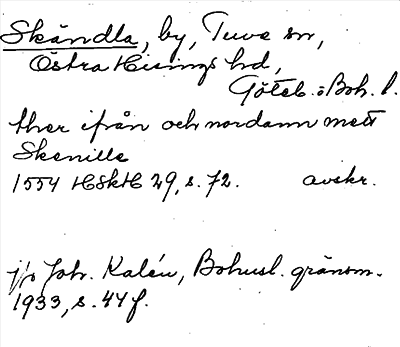 Skändla, by, Tuve sn,
Östra Hisings hd,
Göteb. o Boh. l.
ther ifrån och nordann mett
Skenille
1554 HSkH 29, s. 72. avskr.
jfr Joh. Kalén, Bohusl. gränsm.
1933, s. 44 f.